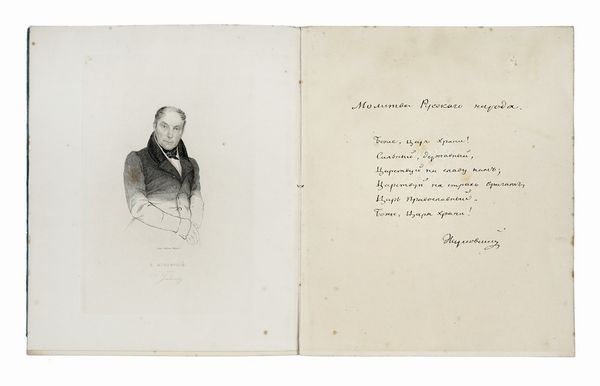 Молитва Русскаго народа.
Боже, Царя храни!
Сильный, державный,
Царствуй на славу намъ;
Царствуй на страхъ врагамъ,
Царь Православный.
Боже, Царя храни!
Жуковскій